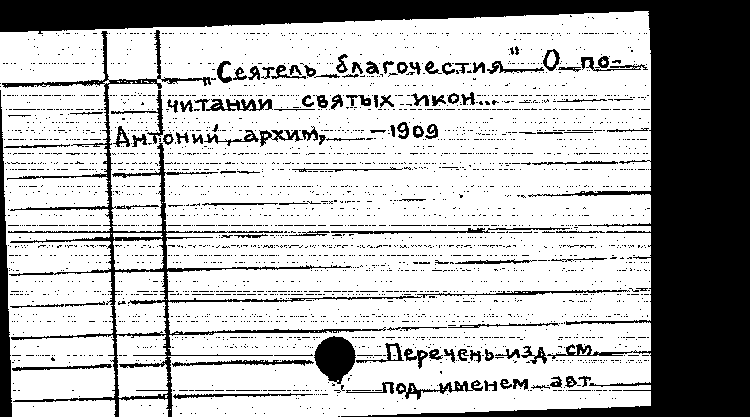 „Сеятель благочестия" О по-
читании святых икон...
Антоний, архим, —1909
Перечень изд. см.
под именем авт.